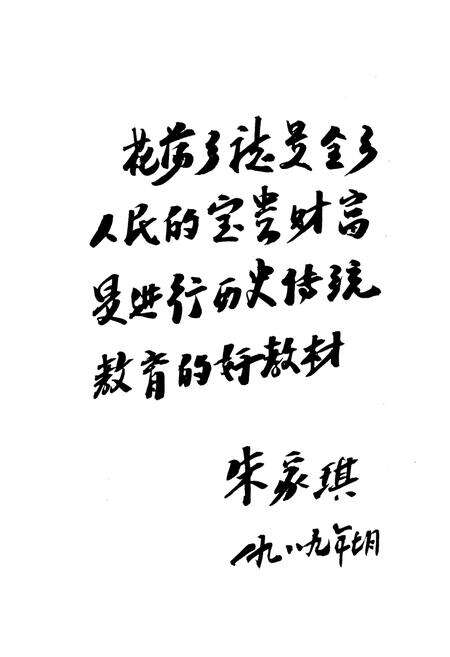 花荡乡誌是全乡
人民的宝贵财富
是进行历史传统
教育的好教材
朱家琪
一九八九年七月